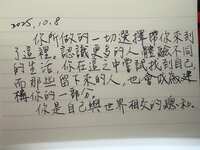 2025.10.8
你所做的一切選擇帶你來到
了這裡。認識更多的人,體驗不同
的生活。你在這之中嘗試找到自己,
而那些留下來的人,也會成為建
構你的一部分。
你是自己與世界相交的總和。